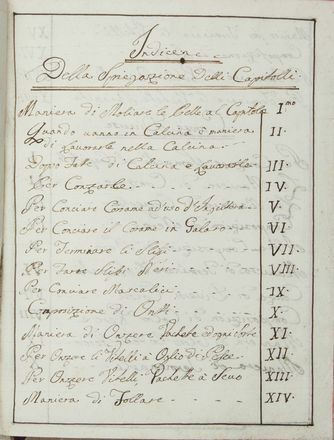 Indice
Della Spiegazione delli Capitolli
Maniera di Moliare le Pelle al Capitolo Imo
Quando vanno in Calcina e maniera II.
di Lavorarle nella Calcina.
Dopo Fatte di Calcina e Lavorarle III.
Per Conzarle IV.
Per Conciare Corame ad uso d' V.
Per Conciare il Corame in VI.
Per Terminare li VII.
Per Farne Neri VIII.
Per IX.
Composizione di X.
Maniera di Onzere Vachete XI.
Per Onzere li Vitelli à Oglio di Pesce XII.
Per Onzere Vitelli, Vachete à Sevo XIII.
Maniera di Follare XIV.